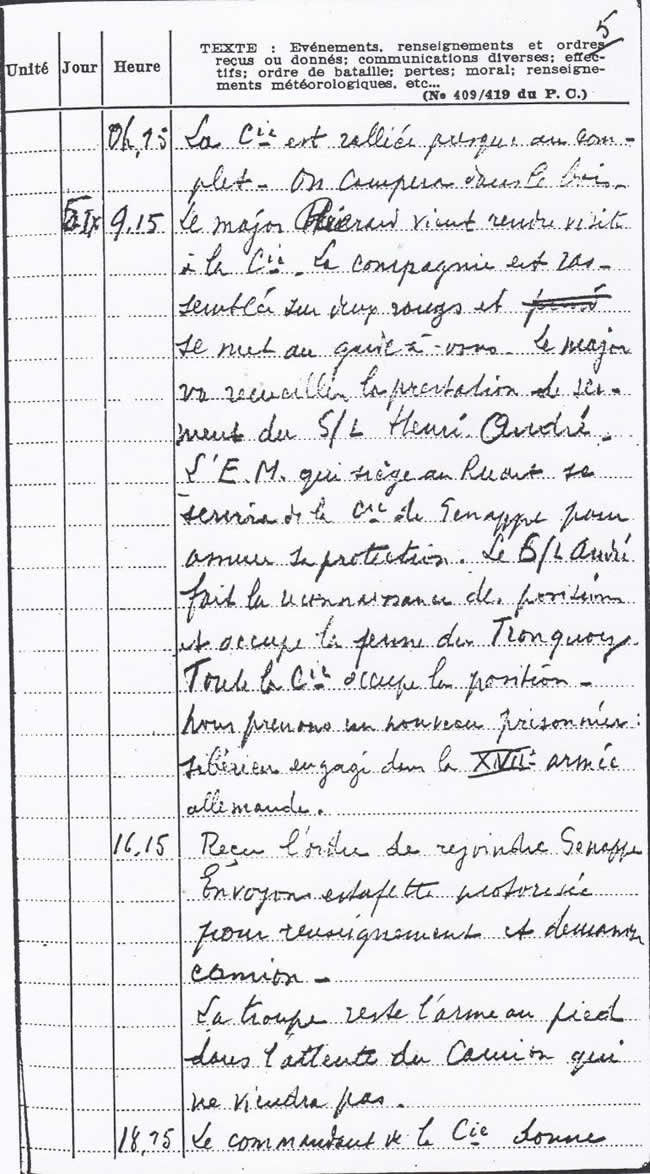 5
Unité Jour Heure
TEXTE : Evénements, renseignements et ordres
reçus ou donnés; communications diverses; effec-
tifs; ordre de bataille; pertes; moral; renseigne-
ments météorologiques, etc...
(No 409/419 du P. C.)
0h,15 La Cie est ralliée presque au com-
plet - On campera dans le bois -
5 IX 9,15 Le major vient rendre visite
à la Cie. La compagnie est ras-
semblée sur deux rangs et
se met au garde-à-vous. Le major
va recueillir la prestation de ser-
ment du S/L Henri André.
L'E.M. qui siège au Ruart se
servira de la Cie de Genappe pour
assurer sa protection. Le S/L André
fait la reconnaissance des positions
et occupe la ferme du Tronquoy.
Toute la Cie occupe la position -
Nous prenons un nouveau prisonnier :
sibérien engagé dans la XVIIe armée
allemande.
16,15 Reçu l'ordre de rejoindre Genappe
Envoyons estafette motorisée
pour renseignement et demander
camion -
La troupe reste l'arme au pied
dans l'attente du camion qui
ne viendra pas.
18,15 Le commandant de la Cie donne